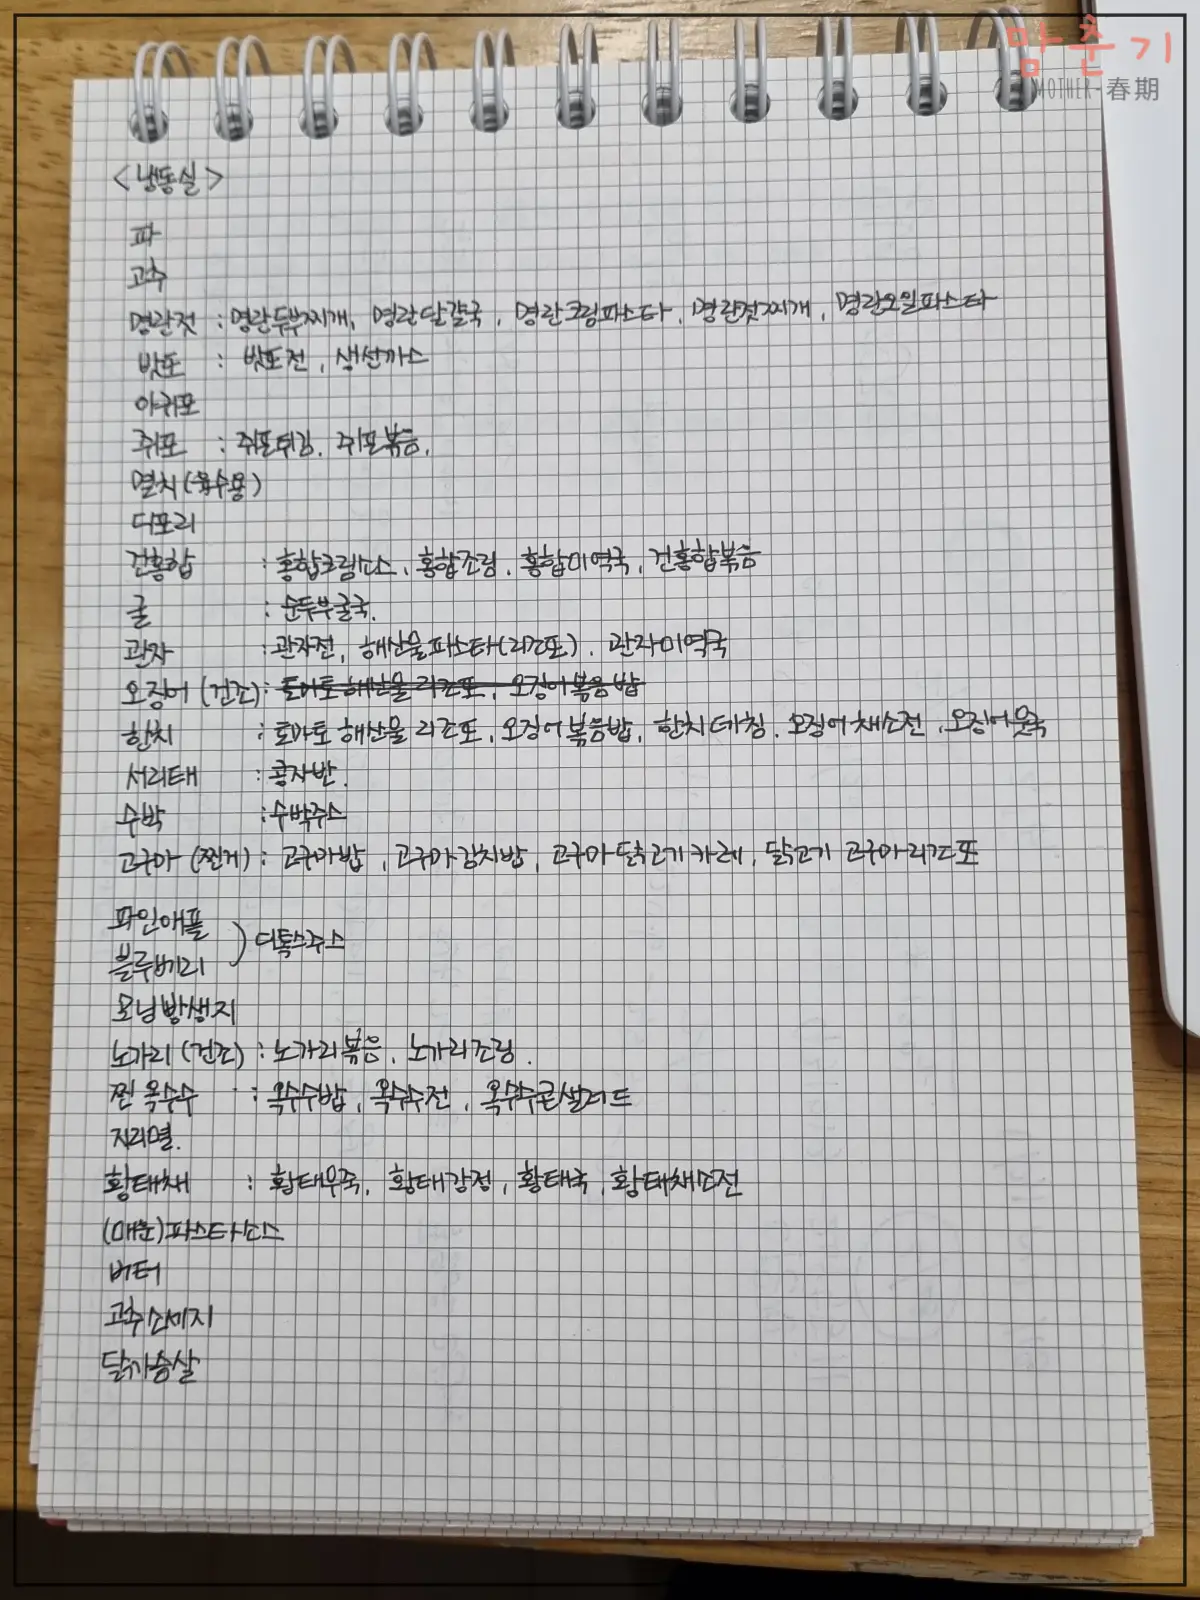 맘춘기
MOTHER-春期
<냉동실>
파
고추
명란젓 : 명란두부찌개, 명란달걀국, 명란크림파스타, 명란젓찌개, 명란오일파스타
밧포 : 밧포전, 생선까스
아귀포
쥐포 : 쥐포튀김, 쥐포볶음,
멸치(육수용)
디포리
건홍합 : 홍합크림소스, 홍합조림, 홍합미역국, 건홍합볶음
굴 : 순두부굴국,
관자 : 관자전, 해산물파스타(리조또), 관자미역국
오징어 (건조) : 토마토해산물리조또, 오징어볶음밥
한치 : 토마토해산물리조또, 오징어볶음밥, 한치데침, 오징어채소전, 오징어뭇국
서리태 : 콩자반.
수박 : 수박주스
고구마 (찐거) : 고구마밥, 고구마김치밥, 고구마닭고기카레, 닭고기고구마리조또
파인애플
블루베리 ) 디톡스주스
모닝빵생지
노가리(건조) : 노가리볶음, 노가리조림.
찐옥수수 : 옥수수밥, 옥수수전, 옥수수콘샐러드
지리멸.
황태채 : 황태무국, 황태강정, 황태국, 황태채소전
(매운)파스타소스
버터
고추소세지
닭가슴살